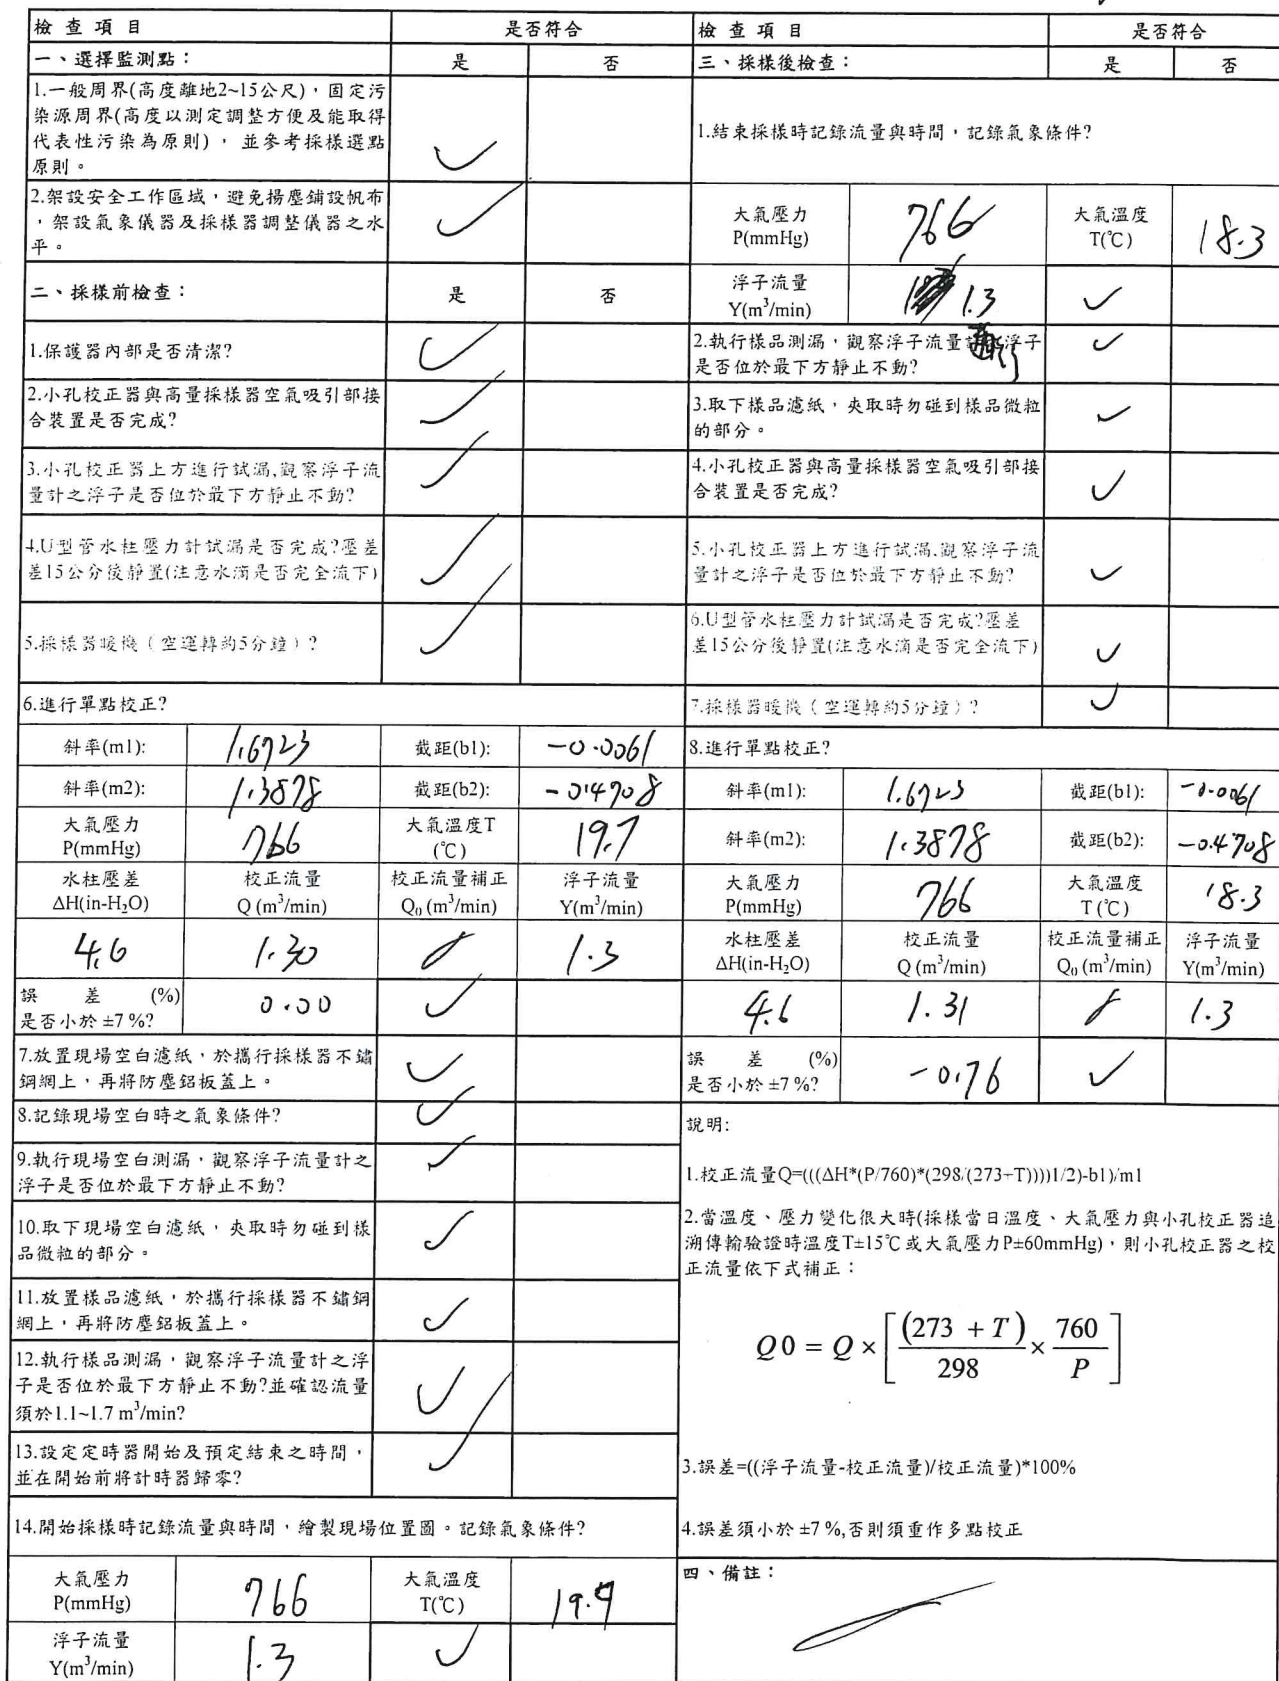 檢 查 項 目 是否符合
一、選擇監測點： 是 否
1.一般周界(高度離地2~15公尺)，固定污
染源周界(高度以測定調整方便及能取得
代表性污染為原則)， 並參考採樣選點
原則。 ✓
2.架設安全工作區域，避免揚塵鋪設帆布
，架設氣象儀器及採樣器調整儀器之水
平。 ✓
二、採樣前檢查： 是 否
1.保護器內部是否清潔? ✓
2.小孔校正器與高量採樣器空氣吸引部接
合裝置是否完成? ✓
3.小孔校正器上方進行試漏,觀察浮子流
量計之浮子是否位於最下方靜止不動? ✓
4.U型管水柱壓力計試漏是否完成?壓差
差15公分後靜置(注意水滴是否完全流下) ✓
5.採樣器暖機（空運轉約5分鐘）? ✓
6.進行單點校正?
斜率(m1): 1.6723 截距(b1): -0.0061
斜率(m2): 1.3878 截距(b2): -0.4708
大氣壓力 大氣溫度T
P(mmHg) 766 (℃) 19.7
水柱壓差 校正流量 校正流量補正 浮子流量
ΔH(in-H₂O) Q (m³/min) Q₀ (m³/min) Y(m³/min)
4.6 1.30 1.3
誤 差 (%)
是否小於 ±7 %? 0.00 ✓
7.放置現場空白濾紙，於攜行採樣器不鏽
鋼網上，再將防塵鋁板蓋上。 ✓
8.記錄現場空白時之氣象條件? ✓
9.執行現場空白測漏，觀察浮子流量計之
浮子是否位於最下方靜止不動? ✓
10.取下現場空白濾紙，夾取時勿碰到樣
品微粒的部分。 ✓
11.放置樣品濾紙，於攜行採樣器不鏽鋼
網上，再將防塵鋁板蓋上。 ✓
12.執行樣品測漏，觀察浮子流量計之浮
子是否位於最下方靜止不動?並確認流量
須於1.1~1.7 m³/min? ✓
13.設定定時器開始及預定結束之時間，
並在開始前將計時器歸零? ✓
14.開始採樣時記錄流量與時間，繪製現場位置圖。記錄氣象條件?
大氣壓力 大氣溫度
P(mmHg) 766 T(℃)
浮子流量
Y(m³/min) 1.3 ✓
檢 查 項 目 是否符合
三、採樣後檢查： 是 否
1.結束採樣時記錄流量與時間，記錄氣象條件?
大氣壓力 大氣溫度
P(mmHg) 766 T(℃) 18.3
浮子流量
Y(m³/min) 1.3 ✓
2.執行樣品測漏，觀察浮子流量 浮子
是否位於最下方靜止不動? ✓
3.取下樣品濾紙，夾取時勿碰到樣品微粒
的部分。 ✓
4.小孔校正器與高量採樣器空氣吸引部接
合裝置是否完成? ✓
5.小孔校正器上方進行試漏,觀察浮子流
量計之浮子是否位於最下方靜止不動? ✓
6.U型管水柱壓力計試漏是否完成?壓差
差15公分後靜置(注意水滴是否完全流下) ✓
7.採樣器暖機（空運轉約5分鐘）? ✓
8.進行單點校正?
斜率(m1): 1.6723 截距(b1): -0.0061
斜率(m2): 1.3878 截距(b2): -0.4708
大氣壓力 大氣溫度
P(mmHg) 766 T (℃) 18.3
水柱壓差 校正流量 校正流量補正 浮子流量
ΔH(in-H₂O) Q (m³/min) Q₀ (m³/min) Y(m³/min)
4.6 1.31 1.3
誤 差 (%)
是否小於 ±7 %? -0.76 ✓
說明:
1.校正流量Q=(((ΔH*(P/760)*(298/(273+T))))1/2)-b1)/m1
2.當溫度、壓力變化很大時(採樣當日溫度、大氣壓力與小孔校正器追
溯傳輸驗證時溫度T±15℃或大氣壓力P±60mmHg)，則小孔校正器之校
正流量依下式補正：
Q0 = Q × [ (273 + T) / 298 × 760 / P ]
3.誤差=((浮子流量-校正流量)/校正流量)*100%
4.誤差須小於 ±7 %,否則須重作多點校正
四、備註：